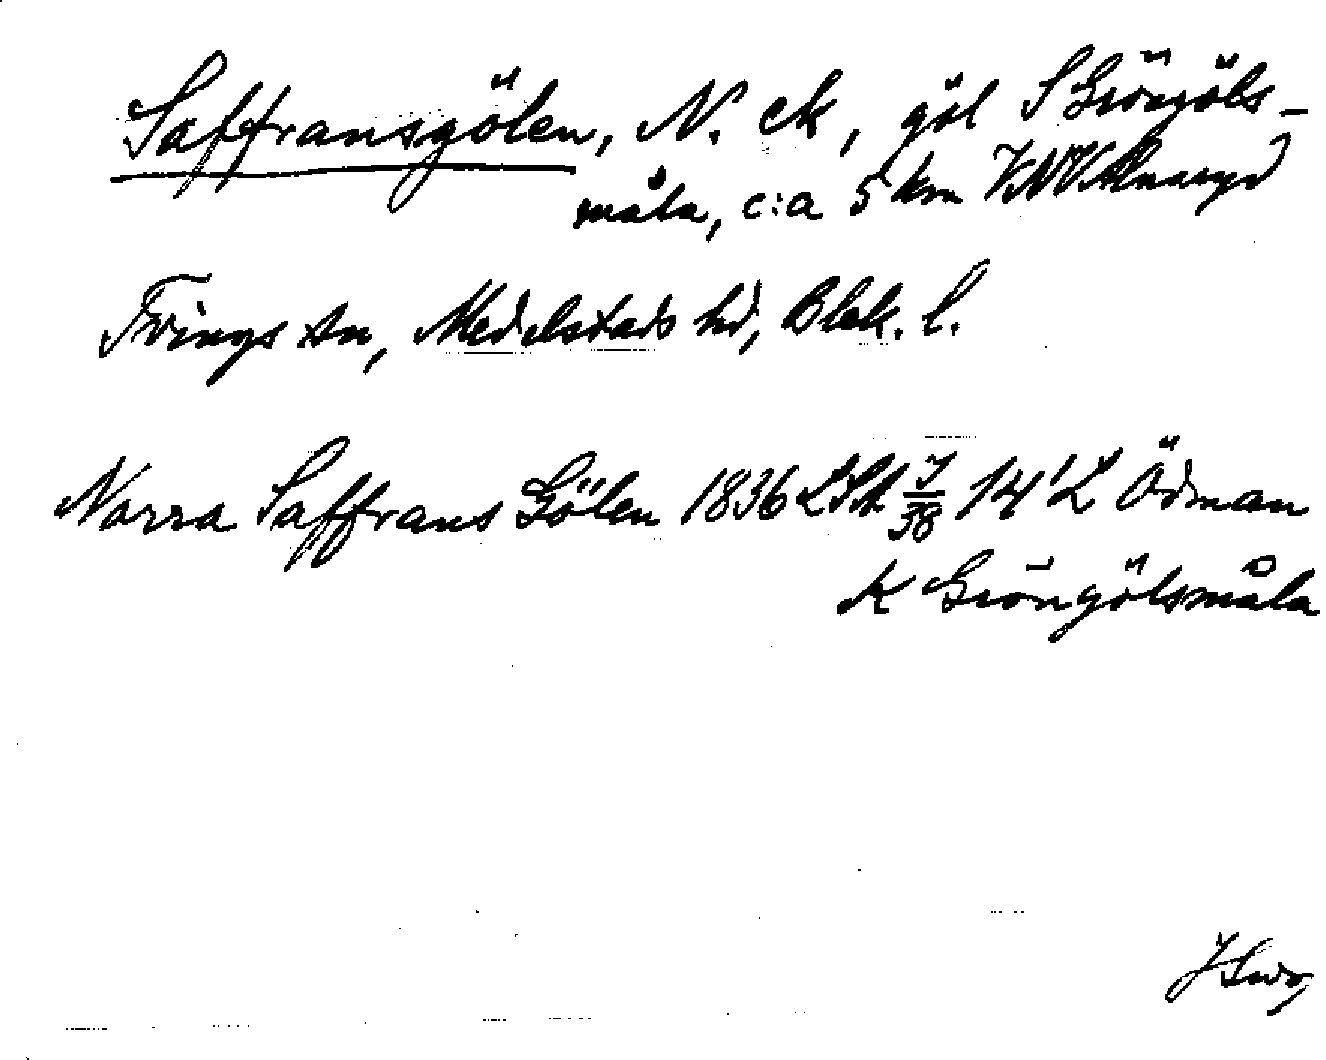 Saffransgölen, N. ek, göl S Gröngöls-
måla, c:a 5 km VNV Alnaryd
Tvings sn, Medelstads hd, Blek. l.
Norra Saffrans Gölen 1836 LSA 14 L Ödman
K Gröngölsmåla